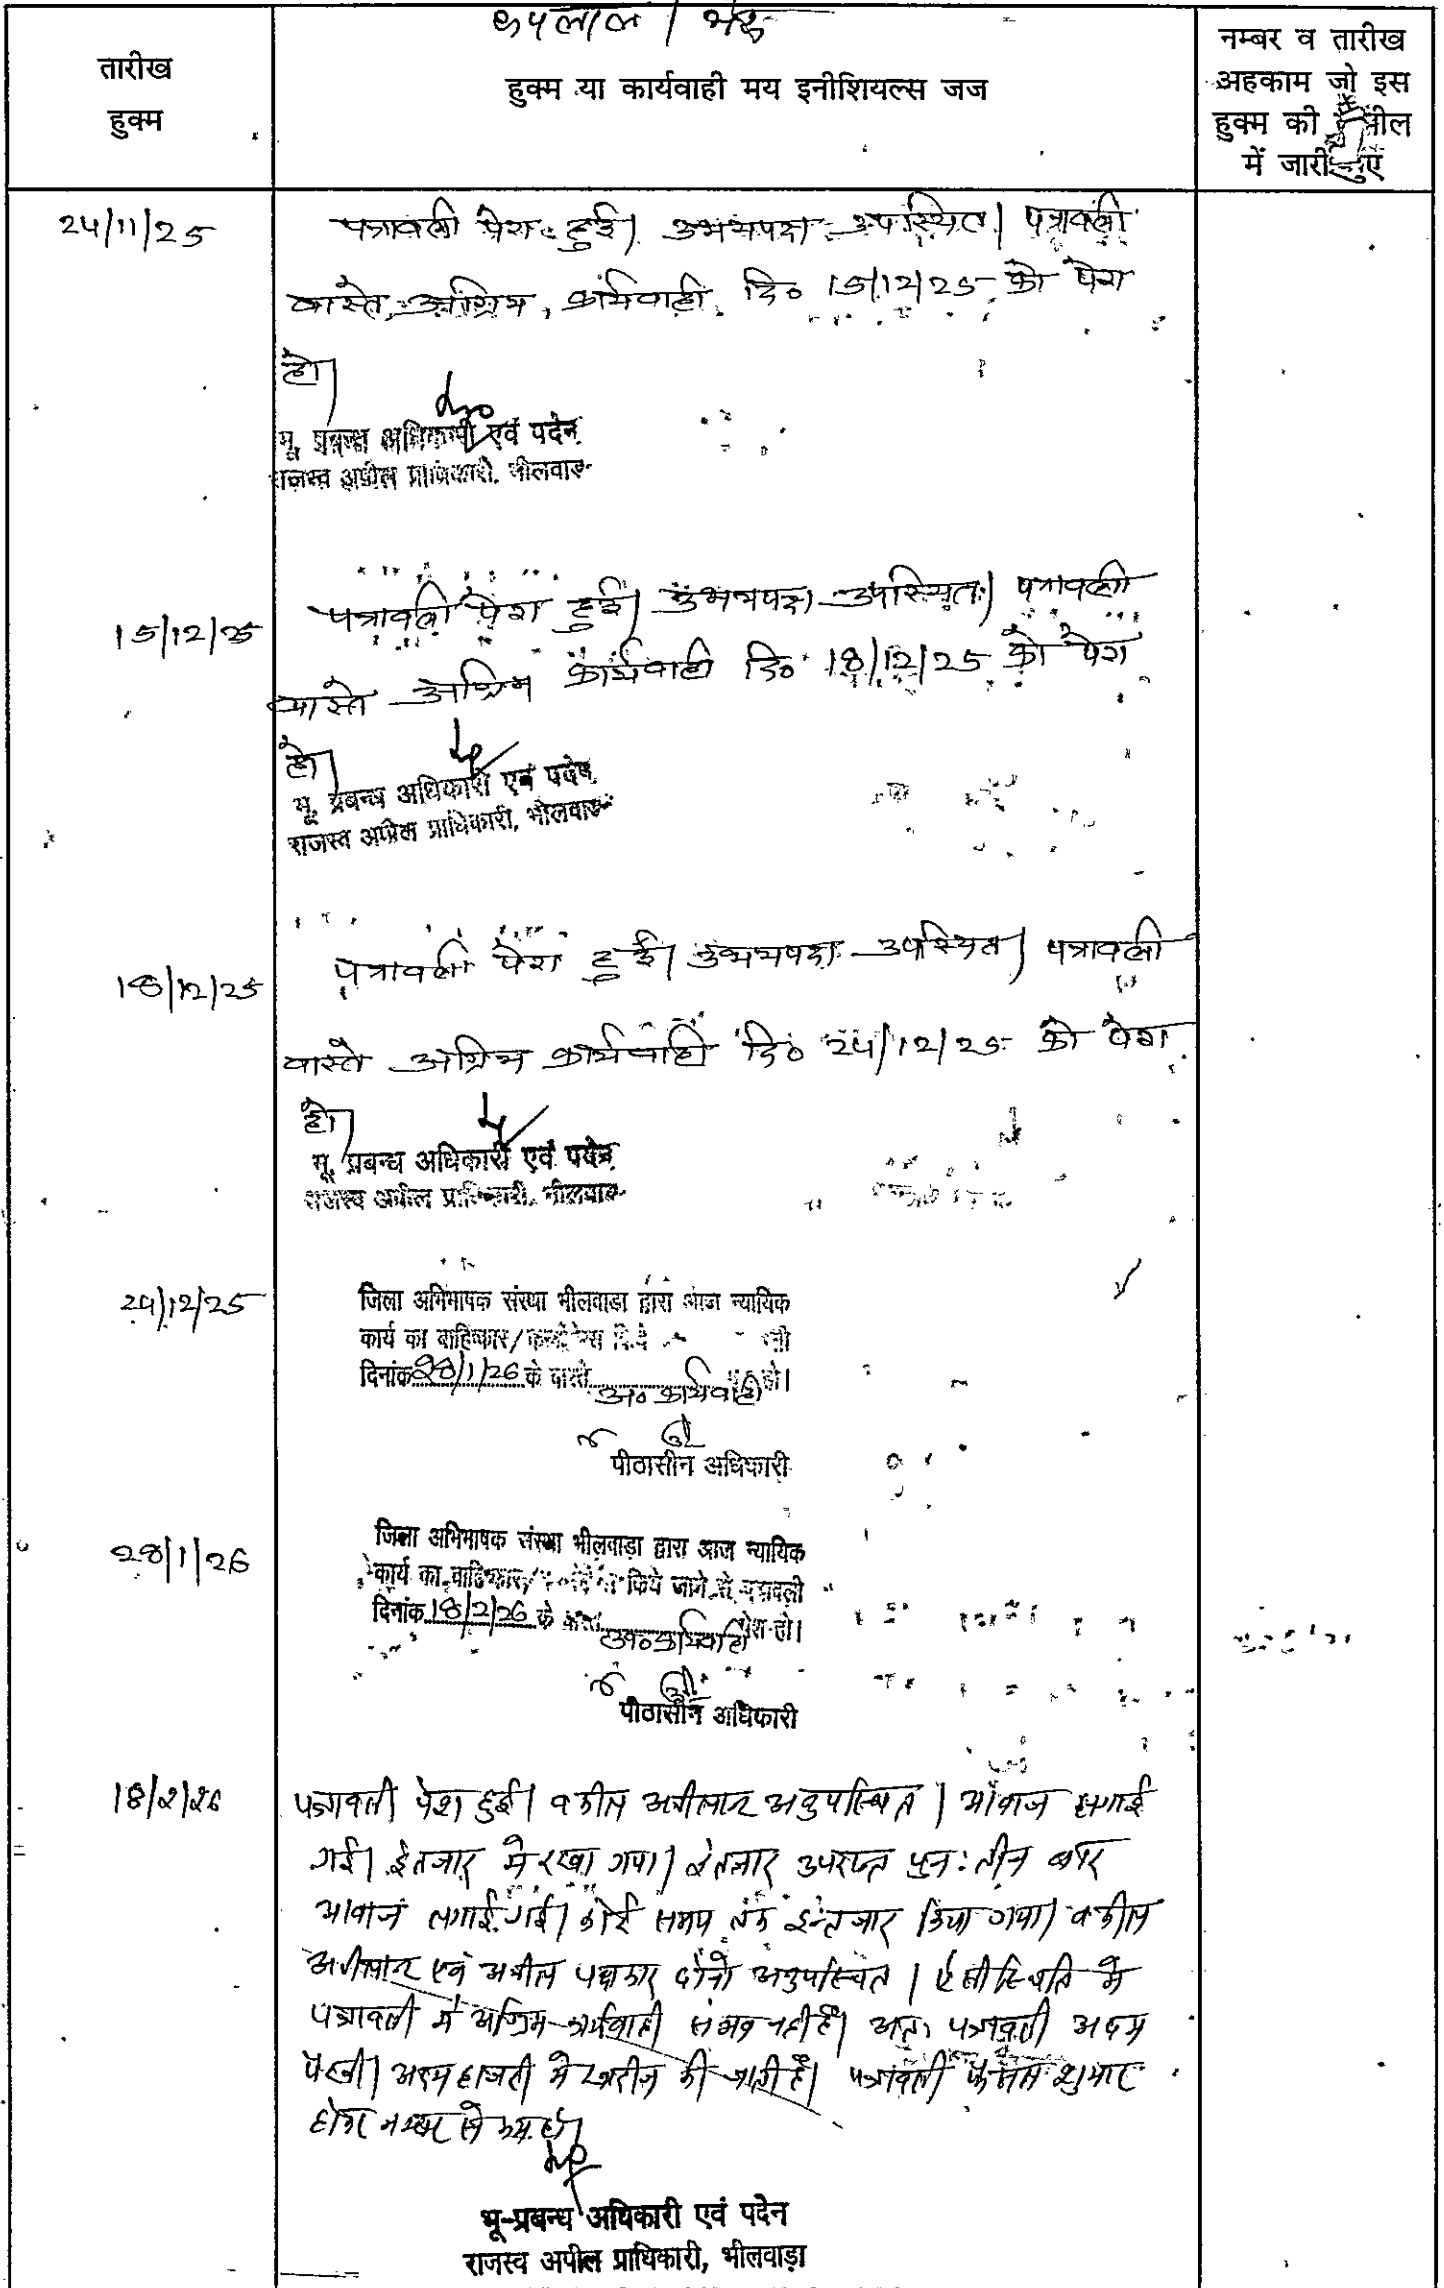 रुपलाल / भैरु
तारीख
हुक्म
हुक्म या कार्यवाही मय इनीशियल्स जज
नम्बर व तारीख
अहकाम जो इस
हुक्म की
में जारी हुए
24/11/25 पत्रावली पेश हुई। उभयपक्ष उपस्थित। पत्रावली
वास्ते अग्रिम कार्यवाही दि० 15/12/25 को पेश
हो।
भू. प्रबन्ध अधिकारी एवं पदेन
राजस्व अपील प्राधिकारी, भीलवाड़ा
15/12/25 पत्रावली पेश हुई। उभयपक्ष उपस्थित। पत्रावली
वास्ते अग्रिम कार्यवाही दि० 18/12/25 को पेश
हो।
भू. प्रबन्ध अधिकारी एवं पदेन
राजस्व अपील प्राधिकारी, भीलवाड़ा
18/12/25 पत्रावली पेश हुई। उभयपक्ष उपस्थित। पत्रावली
वास्ते अग्रिम कार्यवाही दि० 24/12/25 को पेश
हो।
भू. प्रबन्ध अधिकारी एवं पदेन
राजस्व अपील प्राधिकारी, भीलवाड़ा
24/12/25 जिला अभिभाषक संस्था भीलवाडा द्वारा आज न्यायिक
कार्य का बाहिष्कार/
दिनांक 28/1/26 के वास्ते अ० कार्यवाही हो।
पीठासीन अधिकारी
28/1/26 जिला अभिभाषक संस्था भीलवाडा द्वारा आज न्यायिक
कार्य का बाहिष्कार/ किये जाने से पत्रावली
दिनांक 18/2/26 के वास्ते अ० कार्यवाही पेश हो।
पीठासीन अधिकारी
18/2/26 पत्रावली पेश हुई। वकील अपीलार अनुपस्थित। आवाज लगाई
गई। इंतजार में रखा गया। इंतजार उपरान्त पुनः तीन बार
आवाज लगाई गई। कोर्ट समय तक इन्तजार किया गया। वकील
अपीलार एवं अपील पक्षकार दोनो अनुपस्थित। ऐसी स्थिति में
पत्रावली में अग्रिम कार्यवाही संभव नही है। अतः पत्रावली अदम
पैरवी। अदम हाजरी में खारीज की जाती है। पत्रावली फैसल शुमार
होकर नम्बर से कम हो।
भू-प्रबन्ध अधिकारी एवं पदेन
राजस्व अपील प्राधिकारी, भीलवाड़ा